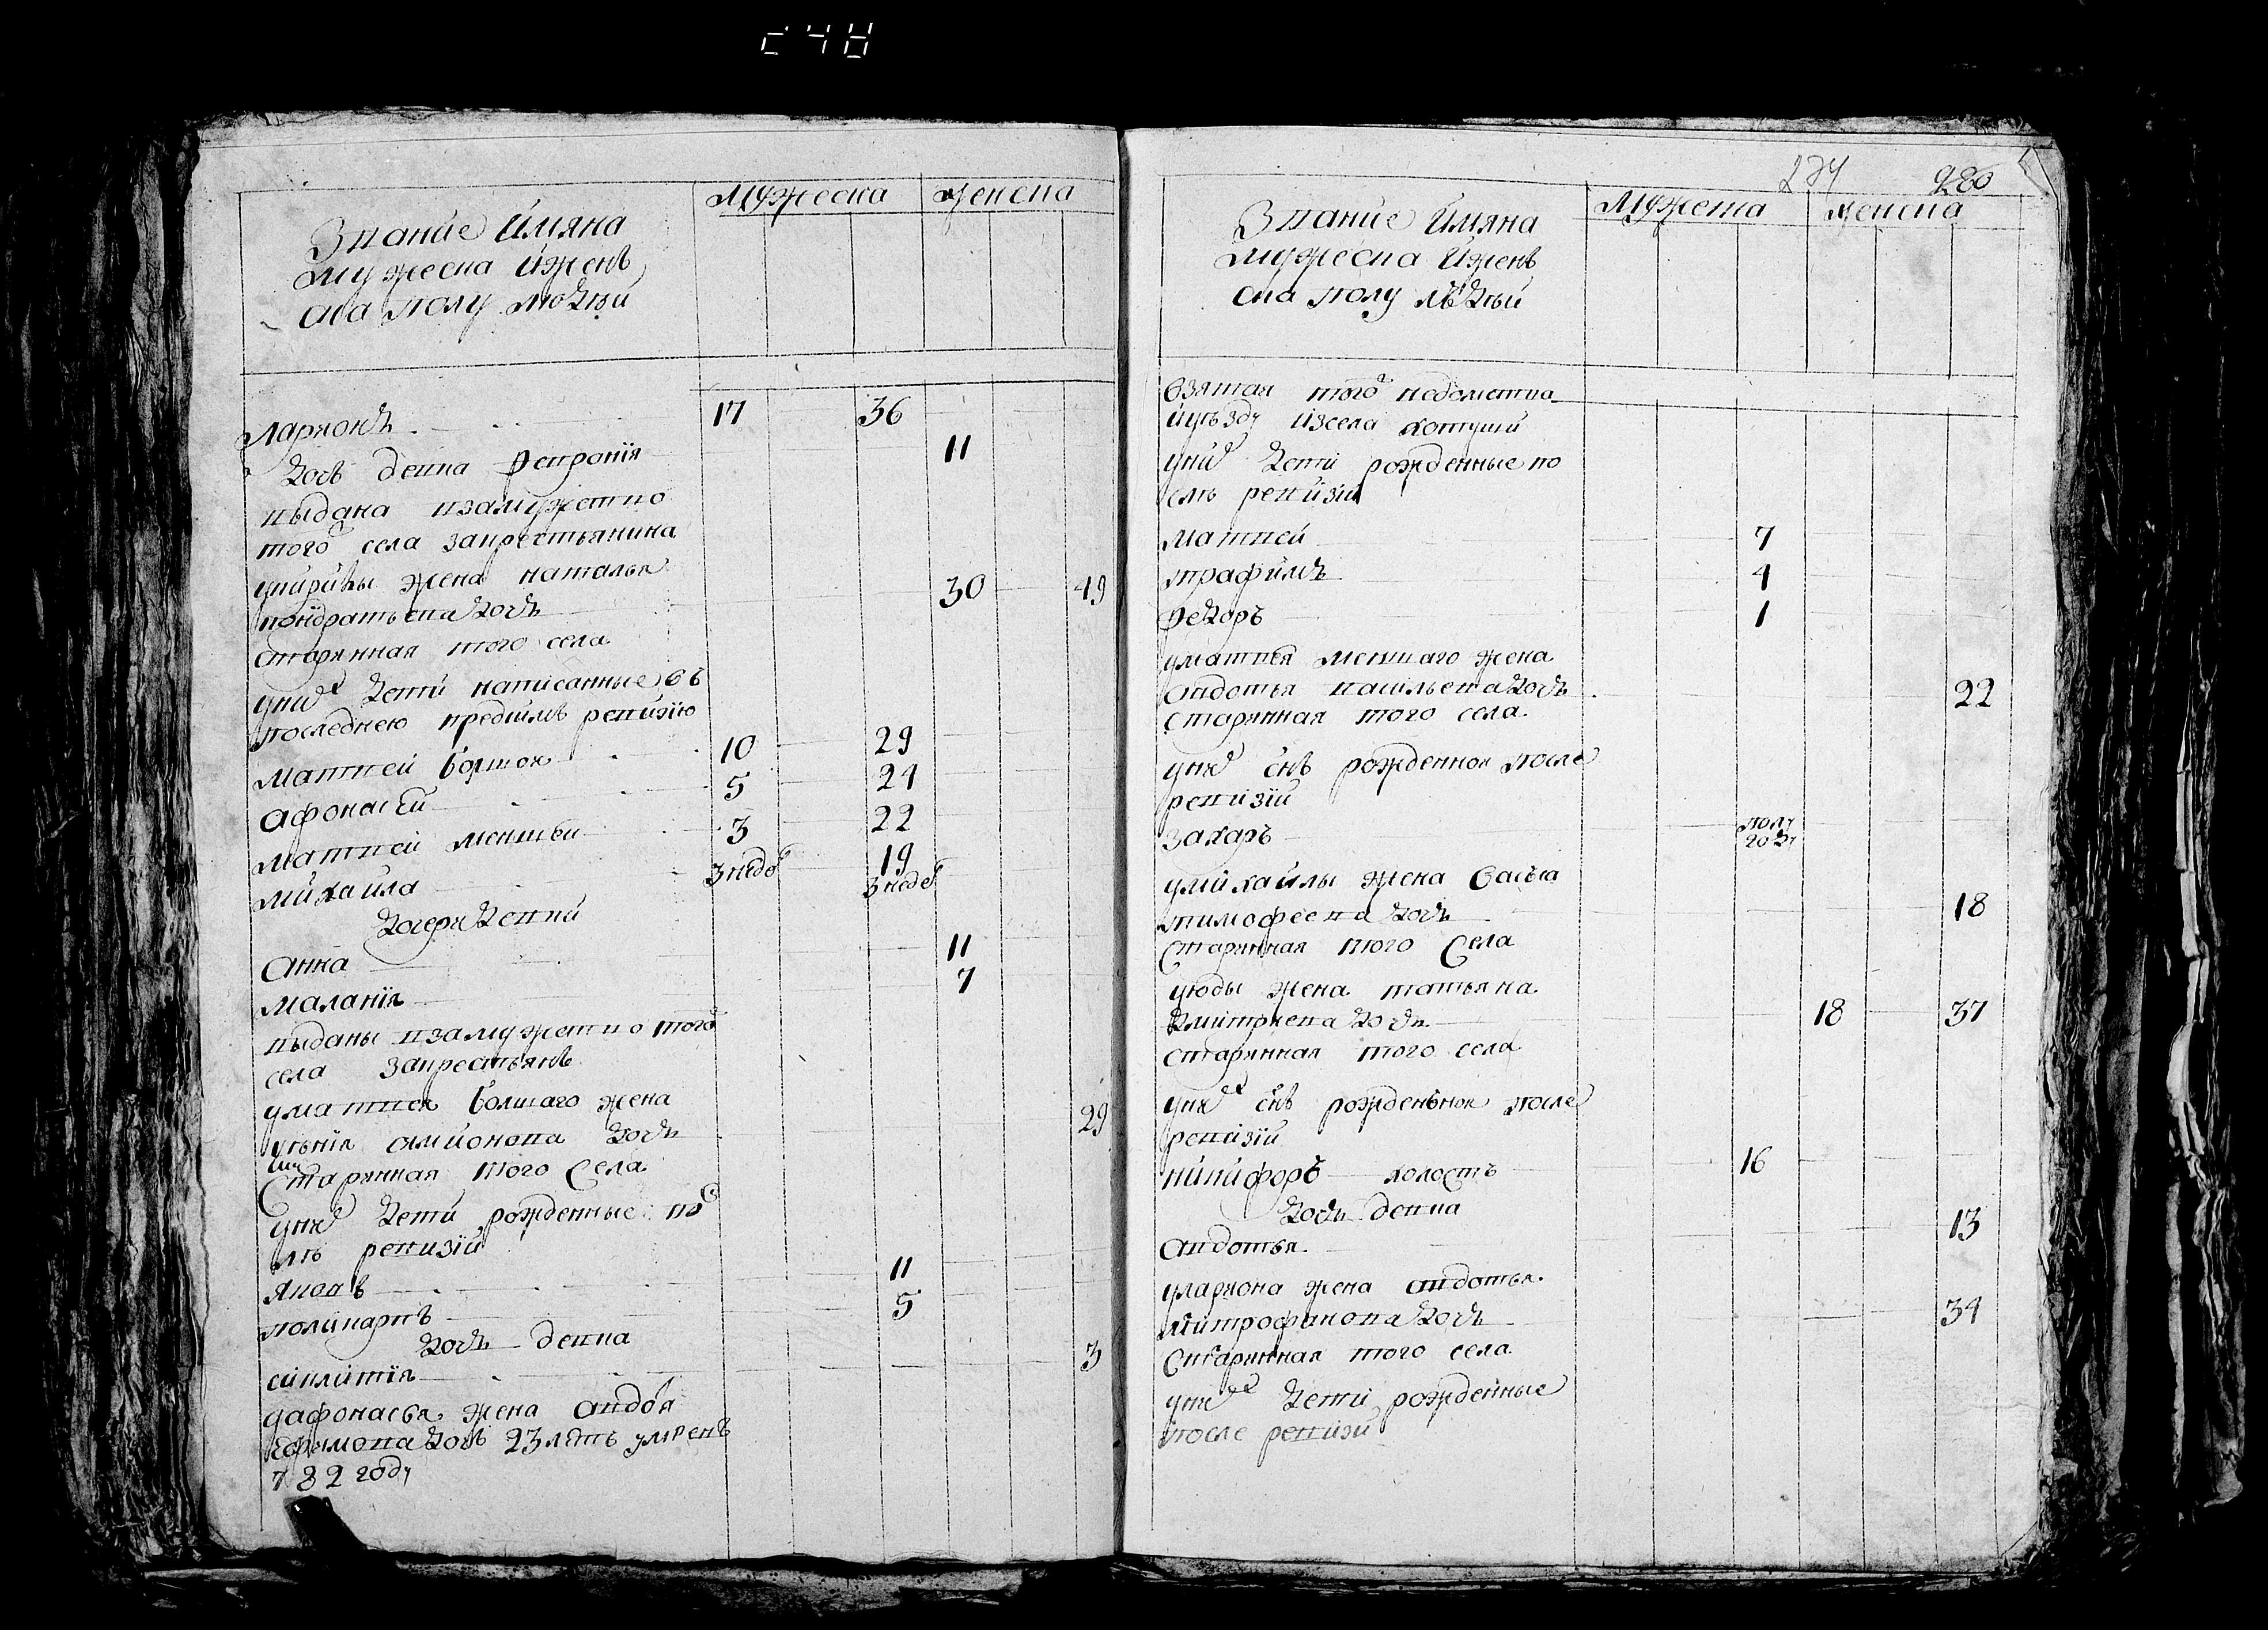 Звание имяна
мужеска ижень
ска полу людьй
мужеска женска
Ларионъ 17 36
дочь девка Февронiя 11
выдана взамужство
того села закрестьянина
укирилы жена наталья
кондратьева дочь 30 49
старинная того села
унихъ дети написанные въ
последнею предсимъ ревизiю
матвей болшои 10 29
афонасей 5 24
матвей меншои 3 22
михаила 3 недѣ 19 3 недѣ
дочери девки
анна 11
маланiя 7
выданы взамужство того
села закрестьянъ
уматвея болшаго жена
амионова дочь 29
Старинная того Села
унихъ дети рожденные пос
лѣ ревизiи
яковъ 11
поликарпъ 5
дочь девка
сиклитiя 3
уафонасья жена авдоя
ефимова дочь 23 лѣтъ умре въ
782 году
274 280
Звание имяна
мужеска ижень
ска полу людьй
мужеска женска
взятая того
иуѣзду изсела котуши
унихъ дети рожденные по
слѣ ревизiи
матвей 7
трафимъ 4
Федоръ 1
уматвея меншаго жена
авдотья васильева дочь 22
старинная того села
унихъ снъ рожденнои после
ревизiи
Захаръ полу году
умихайлы жена васьса
тимофеева дочь 18
старинная того Села
уюды жена татьяна
дмитриева дочь 18 37
старинная того села
унихъ снъ рожденьнои после
ревизiи
никифоръ холостъ 16
дочь девка
авдотья 13
улариона жена авдотья
митрофанова дочь 34
Старинная того села
унихъ дети рожденные
после ревизи